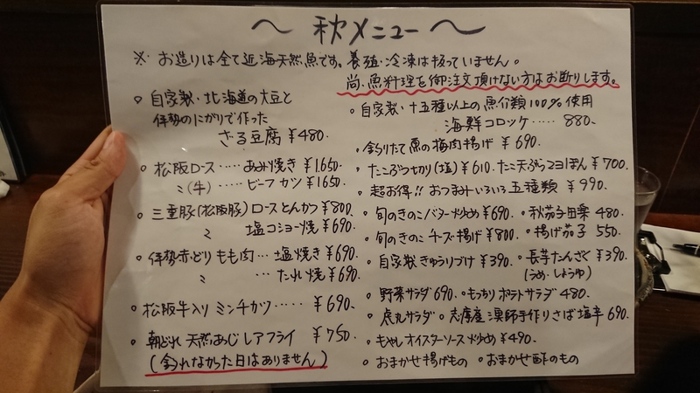 〜 秋メニュー 〜
※ お造りは全て近海天然魚です。養殖・冷凍は扱っていません。
尚、魚料理を御注文頂けない方はお断りします。
○ 自家製・北海道の大豆と
伊勢のにがりで作った
ざる豆腐 ¥480.
○ 松阪ロース‥‥ あみ焼き ¥1650.
〃 (牛)‥‥ビーフカツ ¥1650
○ 三重豚(松阪豚)ロースとんかつ ¥800.
〃 塩コショー焼 ¥690.
○ 伊勢赤どりもも肉‥‥塩焼き ¥690.
〃 ‥‥たれ焼 ¥690.
○ 松阪牛入りミンチカツ‥‥ ¥690.
○ 朝どれ天然あじレアフライ ¥750.
(釣れなかった日はありません)
○ 自家製・十五種以上の魚介類100%使用
海鮮コロッケ‥‥ 880.
○ 釣りたて魚の梅肉揚げ ¥690.
○ たこぶつ切り(塩) ¥610. たこ天ぷら2ヨ1ほん ¥700.
○ 超お得!! おつまみいろいろ五種類 ¥990.
○ 旬のきのこバター炒め ¥690. ○ 秋茄子田楽 480.
○ 旬のきのこチーズ揚げ ¥800. ○ 揚げ茄子 550.
○ 自家製きゅうりづけ ¥390. ○ 長芋たんざく ¥390.
(うめ・しょうゆ)
○ 野菜サラダ 690. ○ もっちりポテトサラダ 480.
○ 虎丸サラダ ○ 志摩産漁師手作りさば塩辛 690.
○ もやしオイスターソース炒め ¥490.
○ おまかせ揚げもの ○ おまかせ酢のもの